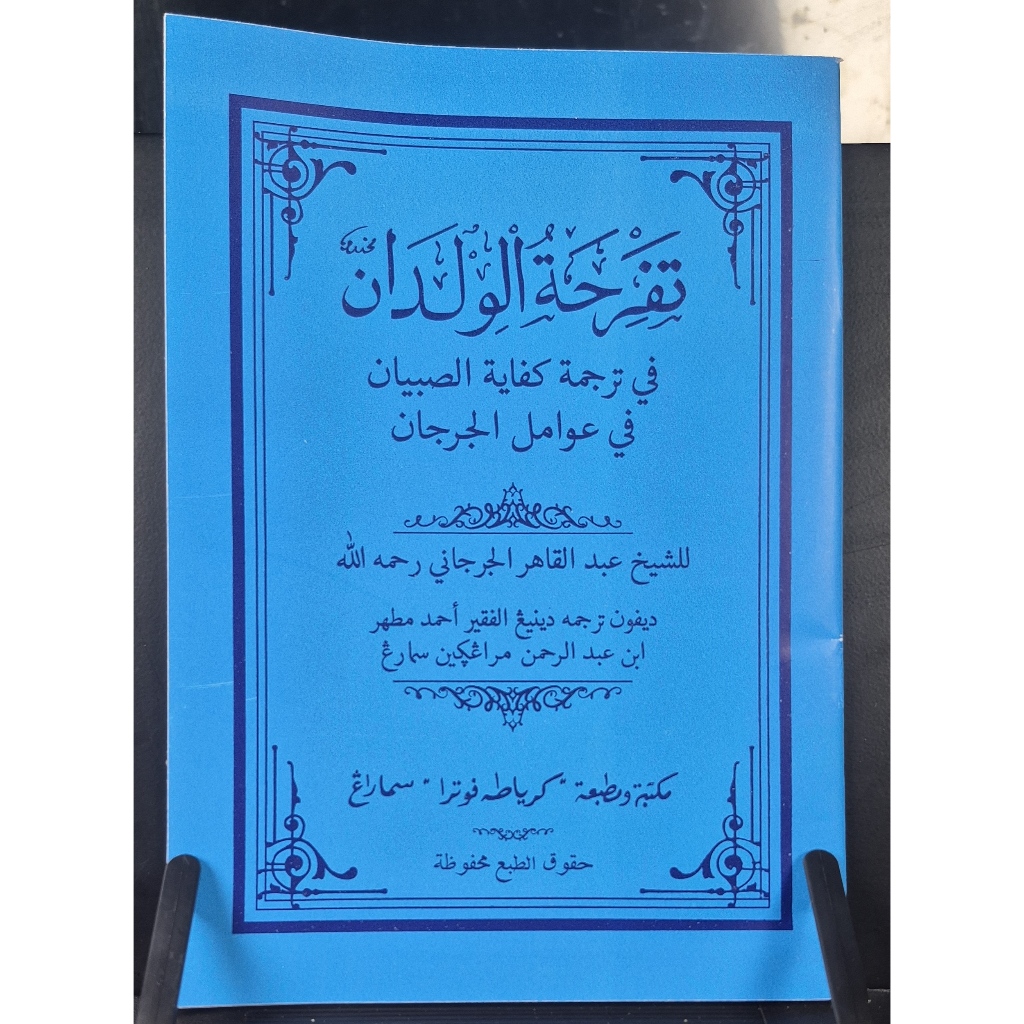 تَفْرِحَةُ الْوِلْدَانِ
في ترجمة كفاية الصبيان
في عوامل الجرجان
للشيخ عبد القاهر الجرجاني رحمه الله
ديفون ترجمه دينيڠ الفقير أحمد مطهر
ابن عبد الرحمن مراڠڮين سمارڠ
مكتبة ومطبعة "كرياطه فوترا" سماراڠ
حقوق الطبع محفوظة